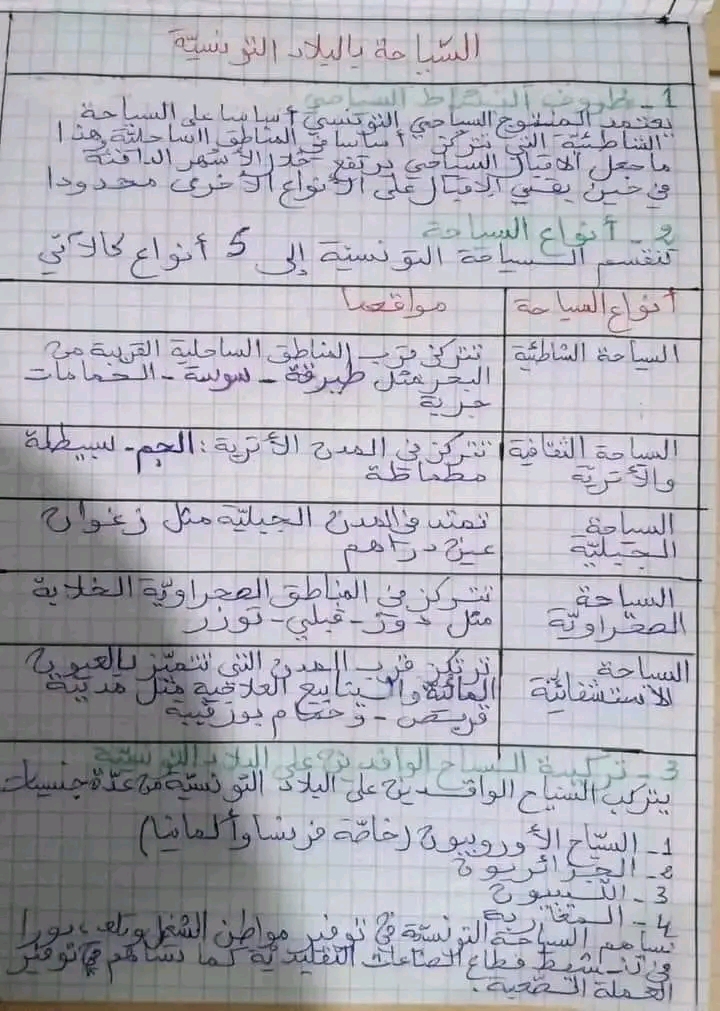 السياحة بالبلاد التونسيّة
1 - ظروف النشاط السياحي
يعتمد المنتوج السياحي التونسي أساسا على السياحة
الشاطئية التي تتركز أساسا في المناطق الساحلية وهذا
ما جعل الاقبال السياحي يرتفع خلال الأشهر الدافئة
في حين يقي الاقبال على الأنواع الأخرى محدودا
2 - أنواع السياحة
تنقسم السياحة التونسية إلى 5 أنواع كالآتي
أنواع السياحة
مواقعها
السياحة الشاطئية
تتركز قرب المناطق الساحلية القريبة من
البحر مثل طبرقة - سوسة - الحمامات
جربة
السياحة الثقافية
والأثريّة
تتركز في المدن الأثرية : الجم - سبيطلة
مطماطة
السياحة
الجبليّة
تمتد في المدن الجبليّة مثل زغوان
عين دراهم
السياحة
الصحراويّة
تتركز في المناطق الصحراويّة الخلابة
مثل دوز - قبلي - توزر
السياحة
الاستشفائيّة
ترتكز قرب المدن التي تتميّز بالعيون
المائية والينابيع العلاجية مثل مدينة
قربص - وحمام بورقيبة
3 - تركيبة السياح الوافدين على البلاد التونسية
يتركب السياح الوافدين على البلاد التونسيّة من عدّة جنسيات
1 - السيّاح الأوروبيون (خاصّة فرنسا وألمانيا)
2 - الجزائريون
3 - الليبيون
4 - المغاربة
تساهم السياحة التونسيّة في توفير مواطن الشغل وتلعب دورا
في تنشيط قطاع الصناعات التقليدية كما تساهم في توفير
العملة الصّعبة .